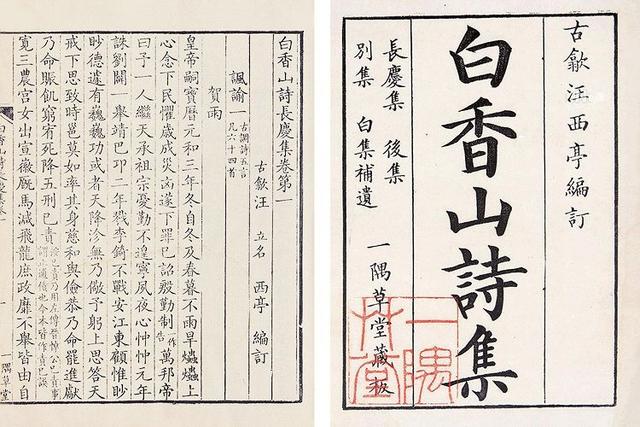 古歙汪西亭編訂
白香山詩集
長慶集 後集
別集 白集補遺
一隅草堂藏板
一隅草堂
白香山詩長慶集卷第一
古歙汪 立名 西亭 編訂
諷諭一 古調詩五言 凡六十四首
賀雨
皇帝嗣寶曆元和三年冬自冬及春暮不雨旱爞爞上
心念下民懼歲成災凶遂下罪已詔殷勤制一作告萬邦帝
曰予一人繼天承祖宗憂勤不遑寧夙夜心忡忡元年
誅劉闢一舉靖巴卭二年戮李錡不戰安江東顧惟眇
眇德遽有巍巍功或者天降沴無乃儆予躬上思答天
戒下思致時邕莫如率其身慈和與儉恭乃命罷進獻
乃命賑飢窮宥死降五刑已責
寛三農宫女出宣徽厩馬減飛龍庶政靡不舉皆由自
一隅草堂